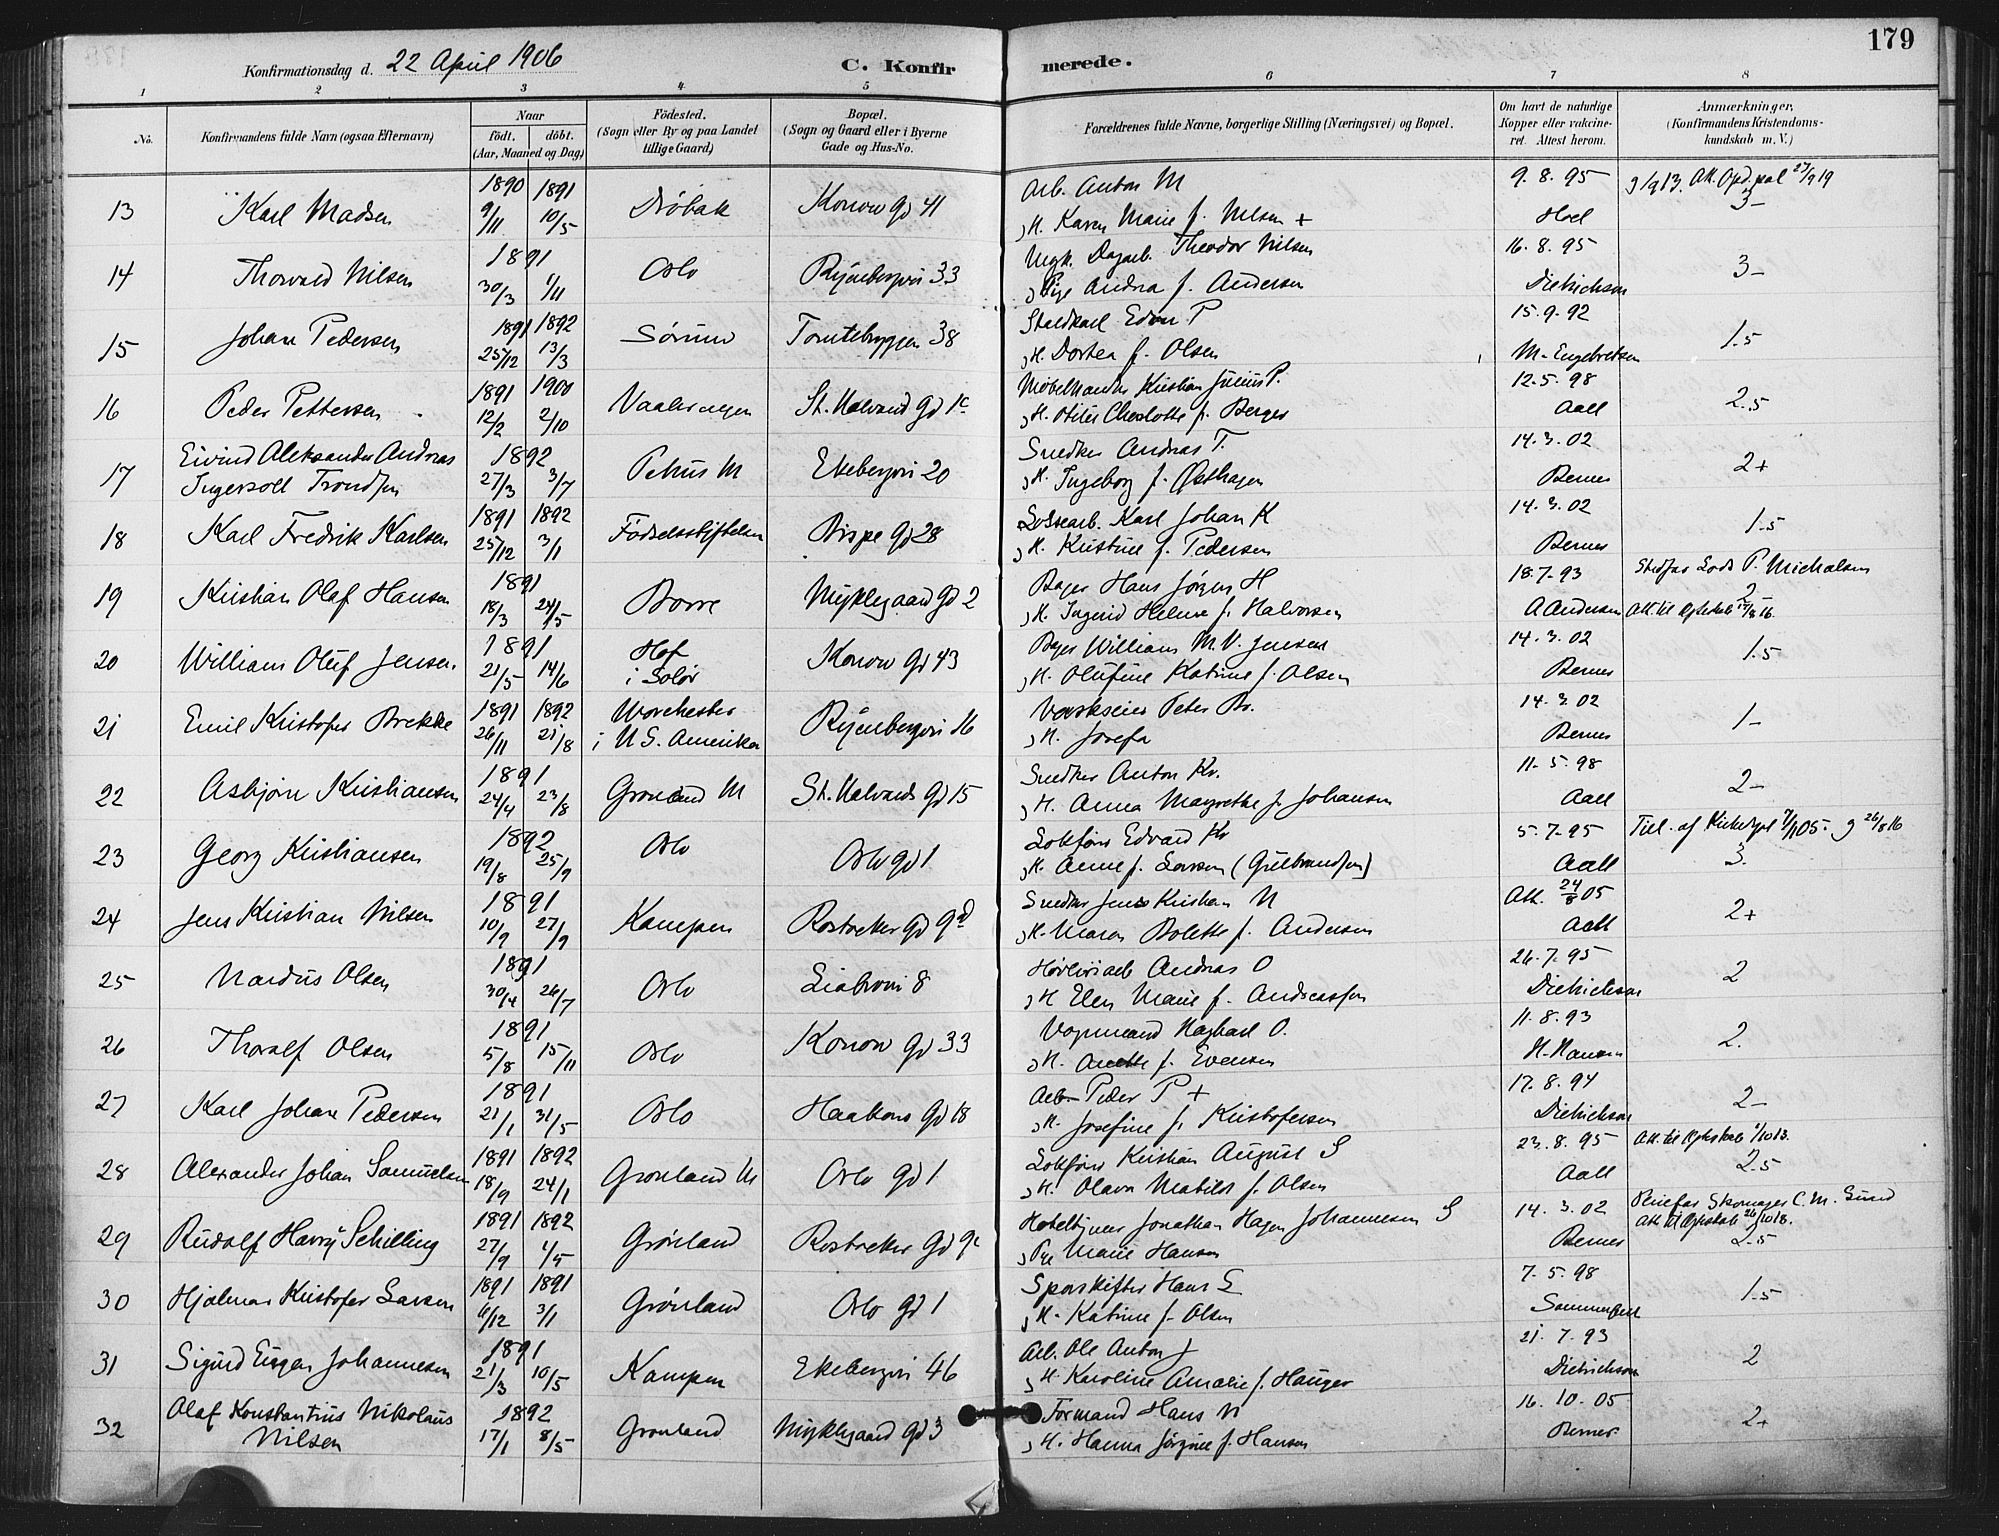 179
Konfirmationsdag d. 22 April 1906 C. Konfirmerede.
1 2 3 4 5 6 7 8
No. Konfirmandens fulde Navn (ogsaa Efternavn) Naar födt. döbt. (Aar, Maaned og Dag) Födested. (Sogn eller By og paa Landet tillige Gaard) Bopæl. (Sogn og Gaard eller i Byerne Gade og Hus-No. Forældrenes fulde Navne, borgerlige Stilling (Næringsvei) og Bopæl. Om havt de naturlige Kopper eller vakcineret. Attest herom. Anmærkninger. (Konfirmandens Kristendomskundskab m. V.)
13 Karl Madsen 1890 9/11 1891 10/5 Dröbak Konow gd 41 Arb. Anton M 9. 8. 95
H. Karen Marie f. Nilsen + Hoel 3-
14 Thorvald Nilsen 1891 30/3 1/11 Oslo Ryenbergvn 33 Ungk. Dagarb. Theodor Nilsen 16. 8. 95
Pige Andrea f. Andersen Dietrichson 3-
15 Johan Pedersen 1891 25/12 1892 13/3 Sörum Tomtebryggen 38 Staldkarl Edvin P 15. 9. 92
H. Dortea f. Olsen M. Engebretsen 1.5
16 Peder Pettersen 1891 12/2 1900 2/10 Vaalerengen St. Halvards gd 1c Möbelhandler Kristian Julius P. 12. 5. 98
H. Charlotte f. Berger Aall 2.5
17 Eivind Aleksander Andreas Ingersoll Trondsen 1892 27/3 3/7 Petrus M Ekebergvn 20 Snedker Andreas T. 14. 3. 02
H. Ingeborg f. Østhagen Berner 2+
18 Karl Fredrik Karlsen 1891 25/12 1892 3/1 Födselsstiftelsen Bispe gd 28 Lossearb. Karl Johan K 14. 3. 02
H. Kristine f. Pedersen Berner 1-5
19 Kristian Olaf Hansen 1891 18/3 24/5 Borre Nyklegaard gd 2 Bager Hans Jörgen H 18. 7. 93 Stedfar Lods P. Michalsen
H. Ingrid Helene f. Halvorsen A Andersen 2-
20 William Oluf Jensen. 1891 21/5 14/6 Hof i Solör Konow gd 43 Bager William M. V. Jensen 14. 3. 02
H. Olufine Katrine f. Olsen Berner 1.5
21 Emil Kristofer Brekke 1891 26/11 1892 21/8 Worchester i U S. Amerika Ryenbergvn 16 Værkseier Peter Br. 14. 3. 02
H. Josefa Berner 1-
22 Asbjörn Kristiansen 1891 24/4 23/8 Grönland M St. Halvards gd 15 Snedker Anton Kr. 11. 5. 98
H. Anna Margrethe f. Johansen Aall 2-
23 Georg Kristiansen 1892 19/8 25/9 Oslo Oslo gd 1 Lokförer Edvard Kr 5. 7. 95
H. Anne f. Larsen (Gulbrandsen) Aall 3.
24 Jens Kristian Nilsen 1891 10/9 27/9 Kampen Rostocker gd 9d Snedker Jens Kristian N
H. Maren Bolette f. Andersen Aall 2+
25 Nardus Olsen 1891 30/4 26/7 Oslo Liabrovn 8 Hövleriarb Andreas O 26. 7. 95
H Elen Marie f. Andreassen Dietrichson 2
26 Thoralf Olsen 1891 5/8 15/11 Oslo Konow gd 33 Vognmand Hagbart O. 11. 8. 93
H. Anette f. Evensen H. Hansen 2.
27 Karl Johan Pedersen 1891 21/1 31/5 Oslo Haakons gd 18 Arb. Peder P + 17. 8. 94
H. Josefine f. Kristofersen Dietrichson 2-
28 Alexander Johan Samuelsen 1891 18/9 1892 24/1 Grönland M Oslo gd 1 Lokförer Kristian August S 23. 8. 95 Att. til Ægteskab 1/10 13.
H. Olava Matilde f. Olsen Aall 2.5
29 Rudolf Harry Schilling 1891 27/9 1892 4/5 Grönland Rostocker gd 9c Hoteltjener Jonathan Hagen Johannesen S 14. 3. 02 Pleiefar Skomager C. M. Sund
Att til Ægteskab 26/10 18.
Pge Marie Hansen Berner 2.5
30 Hjalmar Kristofer Larsen 1891 6/12 1891 3/1 Grönland Oslo gd 1 Sporskifter Hans L 7. 5. 98
H. Katrine f. Olsen Sommerfelt 1-5
31 Sigurd Eugen Johannesen 1891 21/3 10/5 Kampen Ekebergvn 46 Arb. Ole Anton J 21. 7. 93
H. Karoline Amalie f. Hauger Dietrichson 2
32 Olaf Konstantius Nikolaus Nilsen 1892 17/1 8/5 Grönland Nyklegaard gd 3 Formand Hans N 16. 10. 05
H. Hanna Jörgine f. Hansen Berner 2+